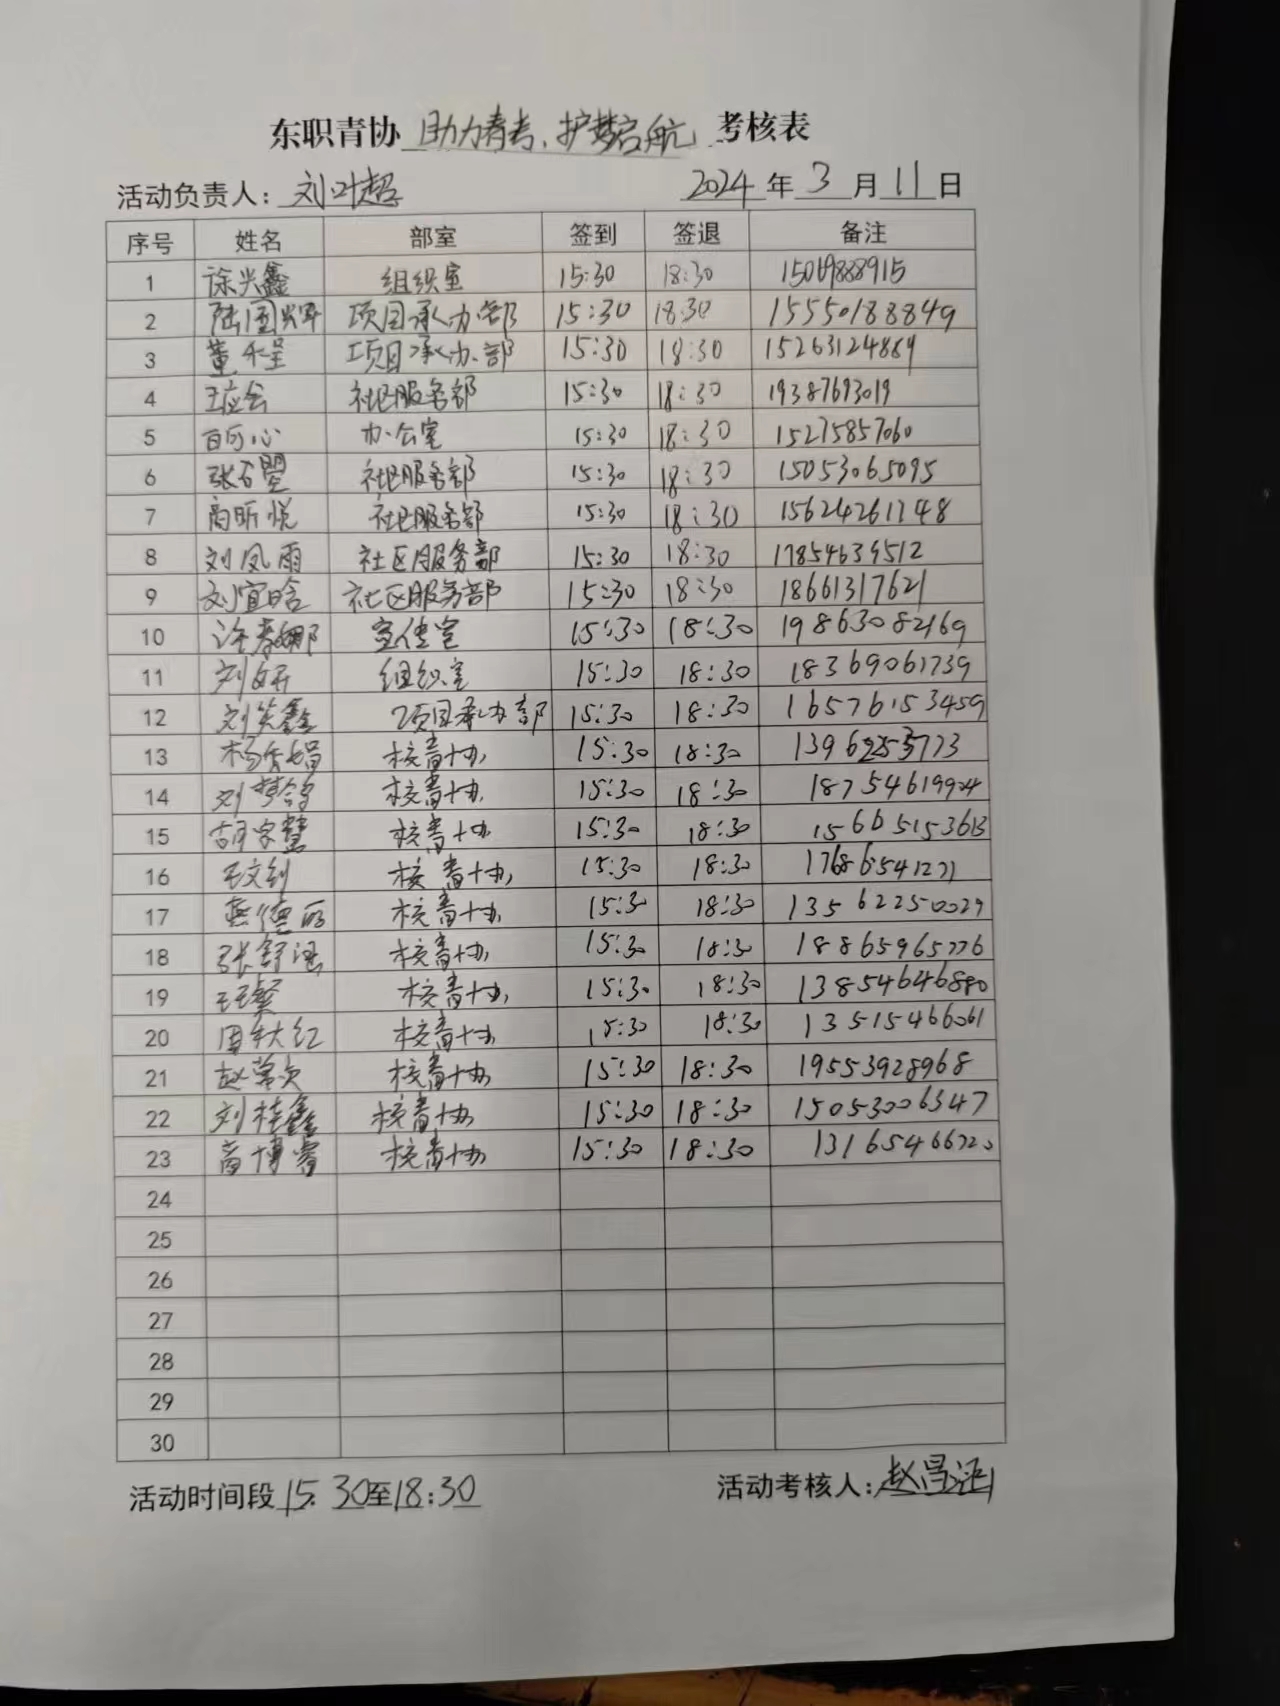 东职青协 助力春考、护梦启航 考核表
活动负责人: 刘叶超 2024 年 3 月 11 日
序号 姓名 部室 签到 签退 备注
1 徐兴鑫 组织室 15:30 18:30 15069888915
2 陆国辉 项目承办部 15:30 18:30 15550188849
3 董 项目承办部 15:30 18:30 15263124869
4 王应会 社区服务部 15:30 18:30 19387693019
5 白可心 办公室 15:30 18:30 15275857060
6 社区服务部 15:30 18:30 15053065095
7 高昕悦 社区服务部 15:30 18:30 15624261248
8 刘凤雨 社区服务部 15:30 18:30 17854634512
9 刘宜晗 社区服务部 15:30 18:30 18661317621
10 许孝娜 宣传室 15:30 18:30 19863082169
11 刘妍 组织室 15:30 18:30 18369061739
12 刘笑鑫 项目承办部 15:30 18:30 16576153459
13 杨秀娟 校青协 15:30 18:30
14 刘梦 校青协 15:30 18:30 18754619904
15 胡字慧 校青协 15:30 18:30 15665153613
16 王文钊 校青协 15:30 18:30 17686541271
17 燕德 校青协 15:30 18:30 13562250029
18 张舒涵 校青协 15:30 18:30 18865965776
19 校青协 15:30 18:30 13854646890
20 周秋红 校青协 15:30 18:30 13515466061
21 赵 校青协 15:30 18:30 19553928968
22 刘桂鑫 校青协 15:30 18:30 15053006347
23 高博睿 校青协 15:30 18:30 13165466720
24
25
26
27
28
29
30
活动时间段 15:30至18:30 活动考核人: 赵昌